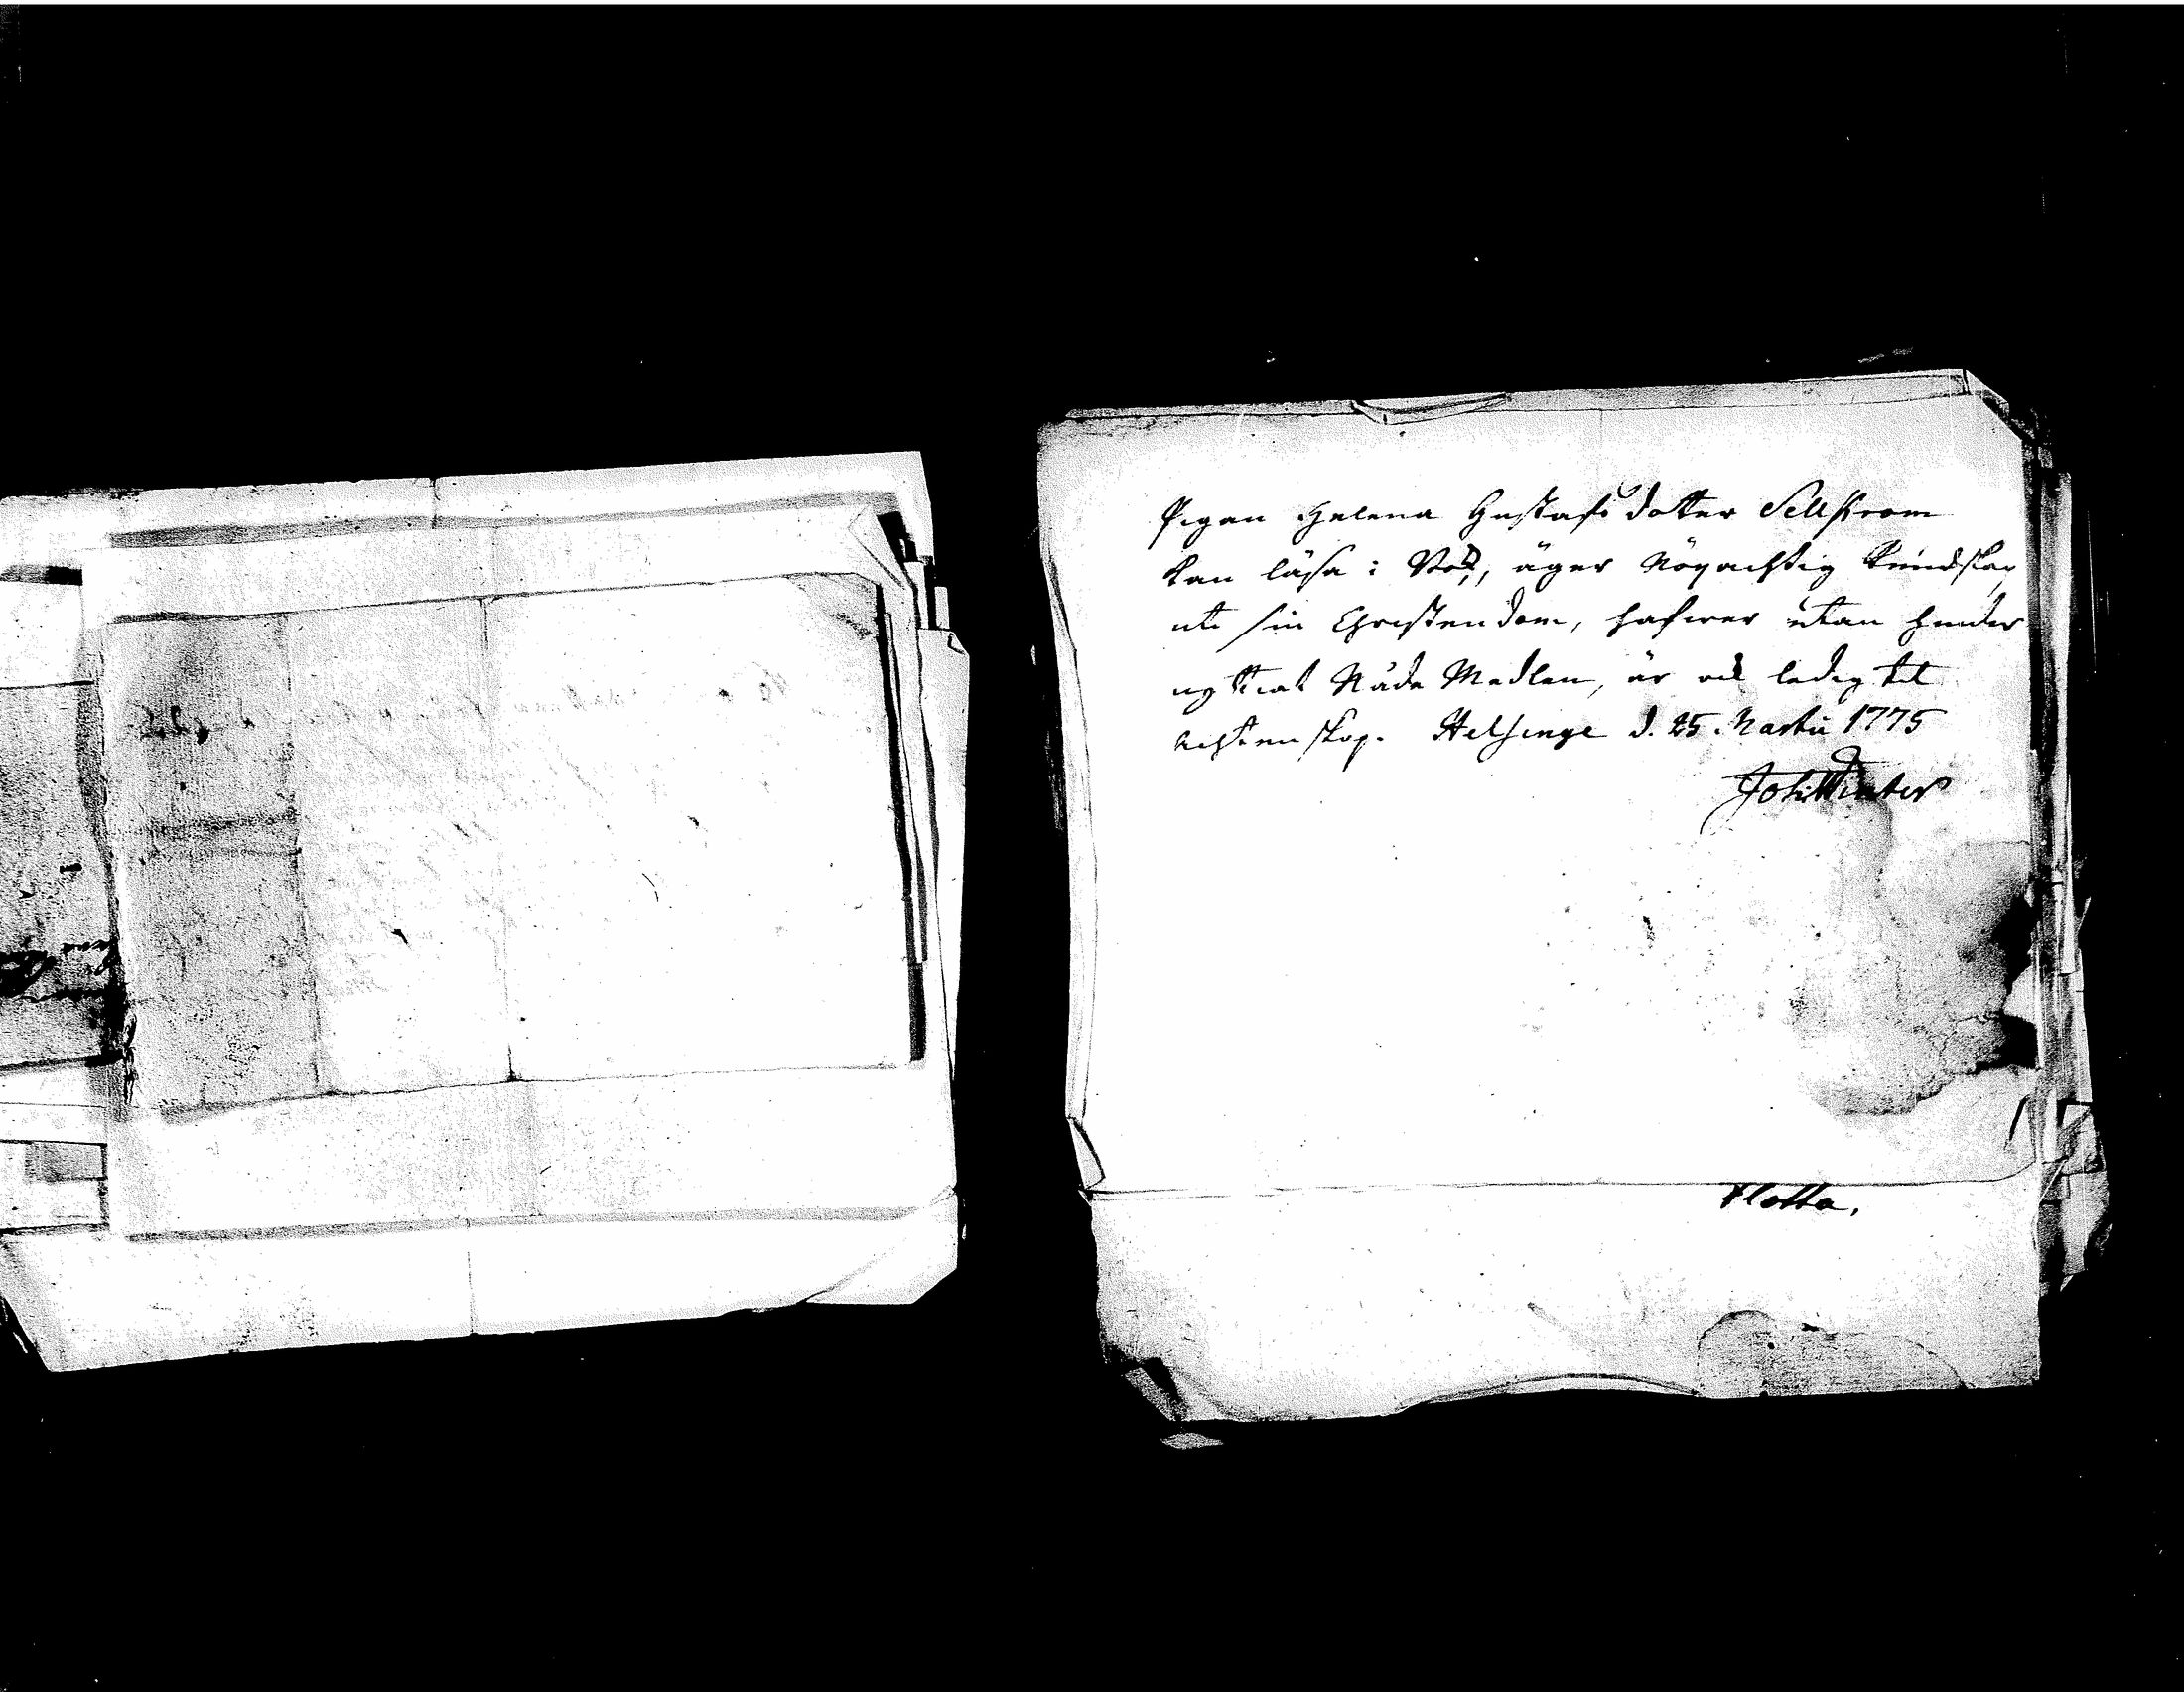 Pigan Helena Gustafs dotter Sellstrom
kan läsa i Bok, äger Nöyachtig kundskap
uti sin Christendom, hafwer utan hinder
nyttiat Nåde Medlen, är ock ledig til
Achtenskap. Helsinge d. 25. Martii 1775
Joh: Winter
Flotta.